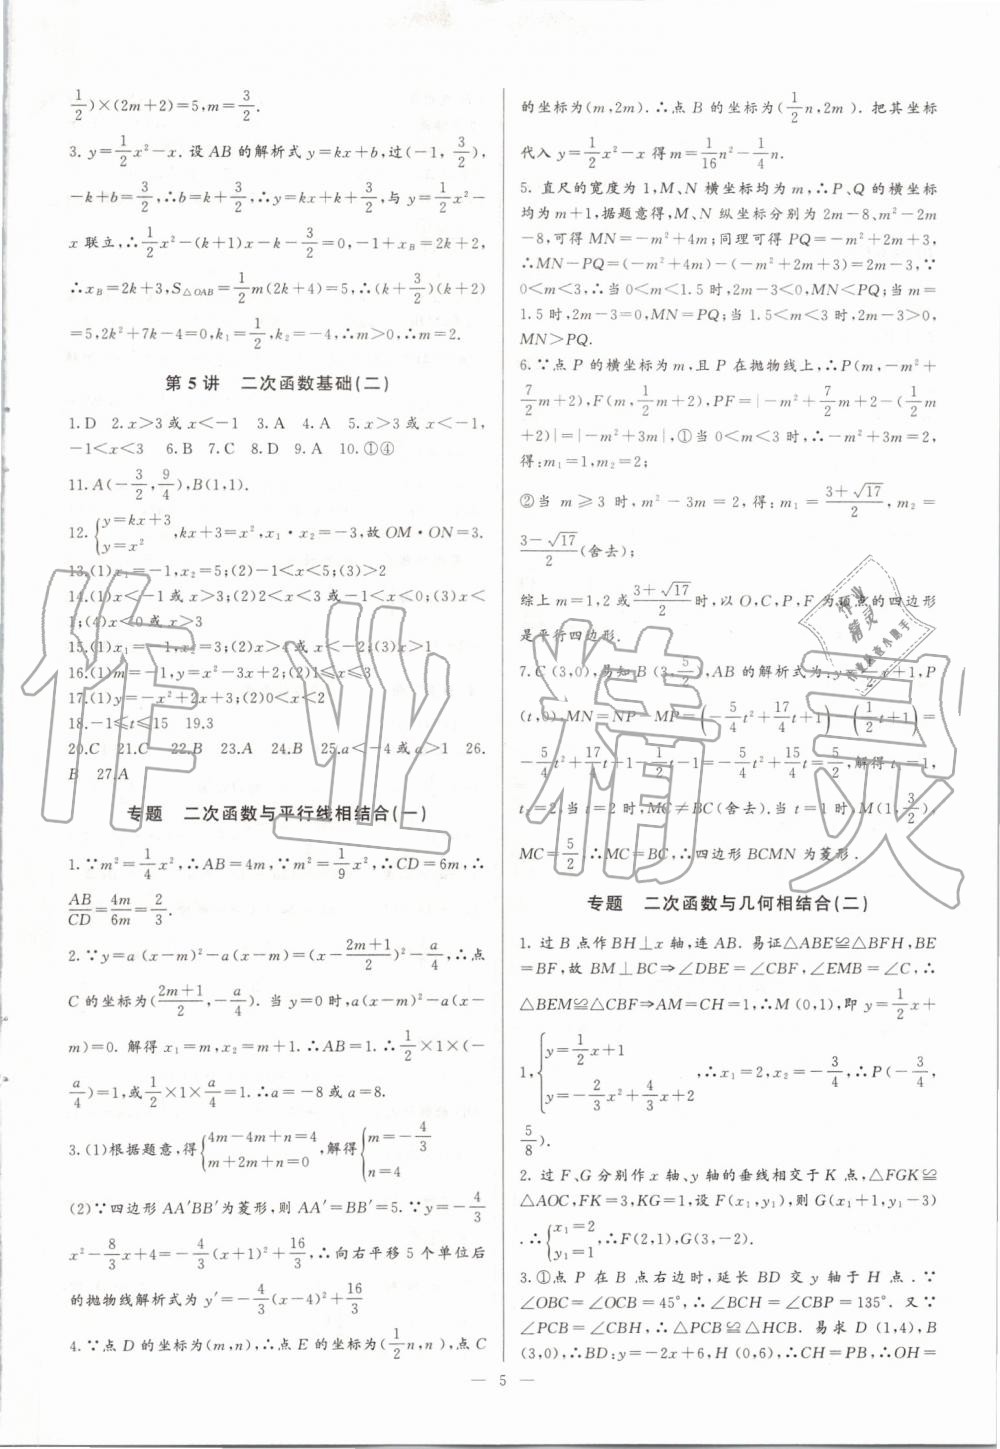 1/2)×(2m+2)=5,m=3/2.
3. y=1/2x²-x. 设 AB 的解析式 y=kx+b,过(-1, 3/2),
-k+b=3/2,∴b=k+3/2,∴y=kx+k+3/2,与 y=1/2x²-
x 联立,∴1/2x²-(k+1)x-k-3/2=0,-1+x_B=2k+2,
∴x_B=2k+3,S△OAB=1/2m(2k+4)=5,∴(k+3/2)(k+2)
=5,2k²+7k-4=0,k₁=1/2,k₂=-4,∴m>0,∴m=2.
第 5 讲 二次函数基础(二)
1.D 2.x>3 或 x<-1 3.A 4.A 5.x>3 或 x<-1,
-1<x<3 6.B 7.C 8.D 9.A 10.①④
11.A(-3/2,9/4),B(1,1).
12.{y=kx+3 y=x²,kx+3=x²,x₁·x₂=-3,故 OM·ON=3.
13.(1)x₁=-1,x₂=5;(2)-1<x<5;(3)>2
14.(1)x<-1 或 x>3;(2)2<x<3 或 -1<x<0;(3)x<
1;(4)x<0 或 x>3
15.(1)x₁=-1,x₂=5;(2)x>4 或 x<-1
16.(1)m=-1,y=x²-3x+2;(2)1≤x≤3
17.(1)y=-x²+2x+3;(2)0<x<2
18.-1≤t≤15 19.3
20.C 21.C 22.B 23.A 24.B 25.a<-4 或 a>1 26.
B 27.A
专题 二次函数与平行线相结合(一)
1.∵m²=1/4x²,∴AB=4m,∵m²=1/9x²,∴CD=6m,∴
AB/CD=4m/6m=2/3.
2.∵y=a(x-m)²-a(x-m)=(x-2m+1/2)²-a/4,∴点
C 的坐标为(2m+1/2,-a/4). 当 y=0时,a(x-m)²-a(x-
m)=0. 解得 x₁=m,x₂=m+1.∴AB=1.∴1/2×1×(-
a/4)=1,或1/2×1×a/4=1.∴a=-8或a=8.
3.(1)根据题意,得{4m-4m+n=4 m+2m+n=0,解得{m=-4/3 n=4
(2)∵四边形 AA′BB′为菱形,则 AA′=BB′=5.∵y=-4/3
x²-8/3x+4=-4/3(x+1)²+16/3,∴向右平移 5 个单位后
的抛物线解析式为 y′=-4/3(x-4)²+16/3
4.∵点 D 的坐标为(m,n),∴点 E 的坐标为(1/2n,n),点 C
的坐标为(m,2m).∴点 B 的坐标为(1/2n,2m). 把其坐标
代入 y=1/2x²-x 得 m=1/16n²-1/4n.
5. 直尺的宽度为 1,M、N 横坐标均为 m,∴P、Q 的横坐标
均为 m+1,据题意得,M、N 纵坐标分别为 2m-8、m²-2m
-8,可得 MN=-m²+4m;同理可得 PQ=-m²+2m+3,
∴MN-PQ=(-m²+4m)-(-m²+2m+3)=2m-3,∵
0<m<3,∴当 0<m<1.5 时,2m-3<0,MN<PQ;当 m=
1.5 时,2m-3=0,MN=PQ;当 1.5<m<3 时,2m-3>0,
MN>PQ.
6.∵点 P 的横坐标为 m,且 P 在抛物线上,∴P(m,-m²+
7/2m+2),F(m,1/2m+2),PF=|-m²+7/2m+2-(1/2m
+2)|=|-m²+3m|,①当 0<m<3 时,∴-m²+3m=2,
得:m₁=1,m₂=2;
②当 m≥3 时,m²-3m=2,得:m₁=3+√17/2,m₂=
3-√17/2(舍去);
综上 m=1,2 或3+√17/2时,以 O,C,P,F 为顶点的四边形
是平行四边形.
7.C(3,0),易知 B(3,5/2),AB 的解析式为:y=1/2x+1,P
(t,0),MN=NP-MP=(-5/4t²+17/4t+1)-(1/2t+1)=
-5/4t²+17/4t+1-1/2t-1=-5/4t²+15/4t=5/2,解得 t₁=1,
t₂=2,当 t=2 时,MC≠BC(舍去).当 t=1 时,M(1,3/2),
MC=5/2,∴MC=BC,∴四边形 BCMN 为菱形.
专题 二次函数与几何相结合(二)
1. 过 B 点作 BH⊥x 轴,连 AB. 易证△ABE≌△BFH,BE
=BF,故 BM⊥BC⇒∠DBE=∠CBF,∠EMB=∠C,∴
△BEM≌△CBF⇒AM=CH=1,∴M(0,1),即 y=1/2x+
1,{y=1/2x+1 y=-2/3x²+4/3x+2,∴x₁=2,x₂=-3/4,∴P(-3/4,
5/8).
2. 过 F、G 分别作 x 轴、y 轴的垂线相交于 K 点,△FGK≌
△AOC,FK=3,KG=1,设 F(x₁,y₁),则 G(x₁+1,y₁-3)
.∴{x₁=2 y₁=1,∴F(2,1),G(3,-2).
3.①点 P 在 B 点右边时,延长 BD 交 y 轴于 H 点.∵
∠OBC=∠OCB=45°,∴∠BCH=∠CBP=135°. 又∵
∠PCB=∠CBH,∴△PCB≌△HCB. 易求 D(1,4),B
(3,0),∴BD:y=-2x+6,H(0,6),∴CH=PB,∴OH=
— 5 —
作业精灵
作业
精灵